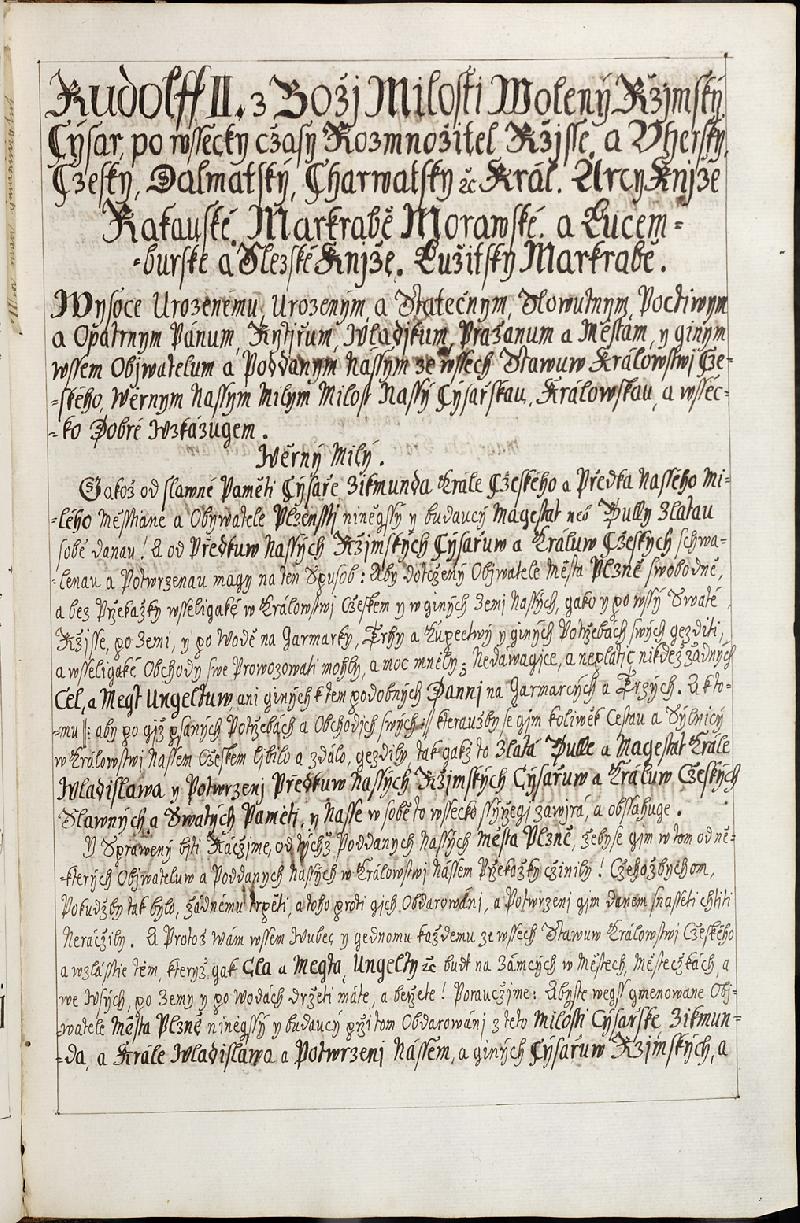 Rudolff II. z Boží Milosti Wolený Ržjmský
Cýsař, po wssecky cžasy Rozmnožitel Ržjsse, a Vherský,
Cžeský, Dalmatský, Charwatský ꝛc Král. Arcy Knjže
Rakauské, Markrabě Morawské, a Lucem-
-burské a Slezské Knjže, Lužitský Markrabě.
Wysoce Urozenému, Urozeným, a Statečným, Slowutným, Poctiwym
a Opatrnym Pánum, Rytjřum, Wladykum, Pražanum a Městam, y giným
wssem Obywatelum a Poddanym Nassym ze wssech Stawuw Králowstwj Cže-
-ského, Wěrnym Nassym Milym Milost Nassy Cýsařskau, Králowskau, a wssec-
-ko Dobré Wzkázugem.
Wěrný Milý.
Gakož od slawné Paměti Cýsaře Zikmunda Krále Cžeského a Předka Nassého Mi-
-lého Měsstiané a Obywatelé Plzensstj niněgssy y budaucý Magestat neb Bully Zlatau
sobě danau! A od Předkuw Nassých Ržjmských Cýsařuw a Králuw Cžeských schwa-
-lenau a Potwrzenau magy na ten Spusob: Aby dotčený Obywatelé Města Plzně swobodně,
a bez Překažky wsseligaké w Králowstwj Cžeském y w giných Zemi Nassých, gako y po wssý Swaté
Ržjsse, po Zemi, y po Wodě na Jarmarky, Trhy a Kupectwý y giných Potřebách swých gezditi,
a wsseligaké Obchody swé Prowozowati mohly, a moc měly; Nedawagjce, a neplatic nikdež žádných
Cel, a Megt Ungeltuw, ani giných k tem podobných Dannj na Jarmarcých a Trzých. A kto-
-mu |: aby po giž psaných Potřebách a Obchodjch swých :| kterauž by se gim koliwěk Cestau a Sylnicý
w Králowstwj Nassem Cžeském ljbilo a zdálo, gezdily tak gakž to Zlatá Bulle a Magestat Krále
Wladislawa y Potwrzenj Předkuw Nassých Ržjmských Cýsařuw a Králuw Cžeských
Slawných a Swatých Paměti, y Nasse w sobě to wssecko ssyřegi zawjra, a obsahuge.
Y Sprawený býti Ráčjme, od týchž Poddanych Nassých Města Plzně, žeby se gim w tom od ně-
-kterých Obywateluw a Poddaných Nassých w Králowstwj Nassem Překažky činily! Cžehož bychom,
Pokudž by tak bylo, žádnému trpěti, a toho proti gich Obdarowánj, a Potwrzenj gim daném snasseti chtiti
Neráčily. A Protož Wám wssem Wubec y gednomu každému ze wssech Stawuw Králowstwj Cžeského
a wzlásstie těm, kteryž gak Cla a Megta, Ungelty ꝛc buď na Zámcých w Městech, Městečkách, a
we Wsých, po Zemy y po Wodach držeti máte, a beržete! Porauczjme: Abyste wegss gmenowané Oby-
-watele Města Plzně niněgssý y budaucý při tom Obdarowánj z této Milosti Cýsařské Zikmun-
-da, a Krále Wladislawa a Potwrzenj Nassem, a giných Cýsařuw Ržjmských, a